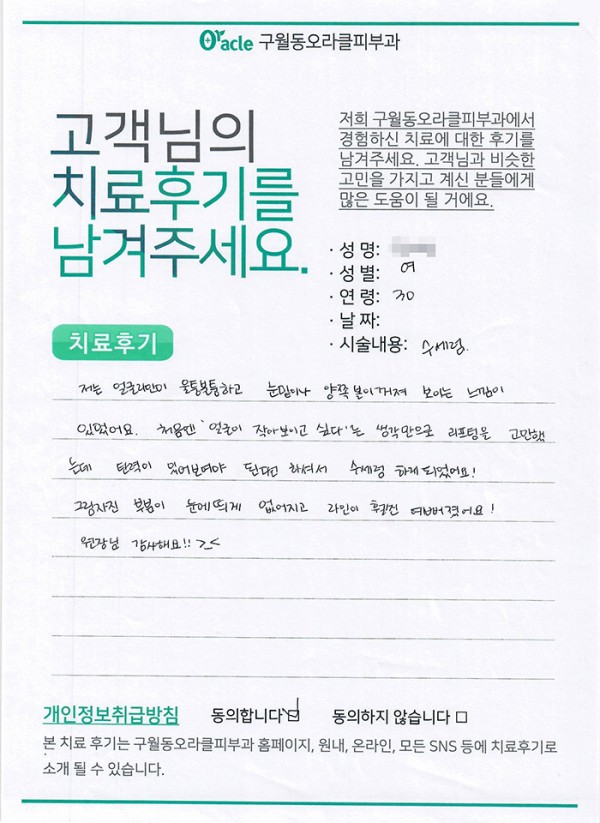 Oracle 구월동오라클피부과
고객님의
치료후기를
남겨주세요.
저희 구월동오라클피부과에서
경험하신 치료에 대한 후기를
남겨주세요. 고객님과 비슷한
고민을 가지고 계신 분들에게
많은 도움이 될 거에요.
· 성 명:
· 성 별: 여
· 연 령: 30
· 날 짜:
· 시술내용: 수세령
치료후기
저는 얼굴라인이 울퉁불퉁하고 눈밑이나 양쪽 볼이 꺼져 보이는 느낌이
있었어요. 처음엔 '얼굴이 작아보이고 싶다'는 생각만으로 리프팅을 고민했
는데 탄력이 있어보여야 된다면 하셔서 수세령 하게 되었어요!
그림자진 부분이 눈에 띄게 없어지고 라인이 훨씬 예뻐졌어요!
원장님 감사해요!! >_<
개인정보취급방침 동의합니다 동의하지 않습니다 □
본 치료 후기는 구월동오라클피부과 홈페이지, 원내, 온라인, 모든 SNS 등에 치료후기로
소개 될 수 있습니다.